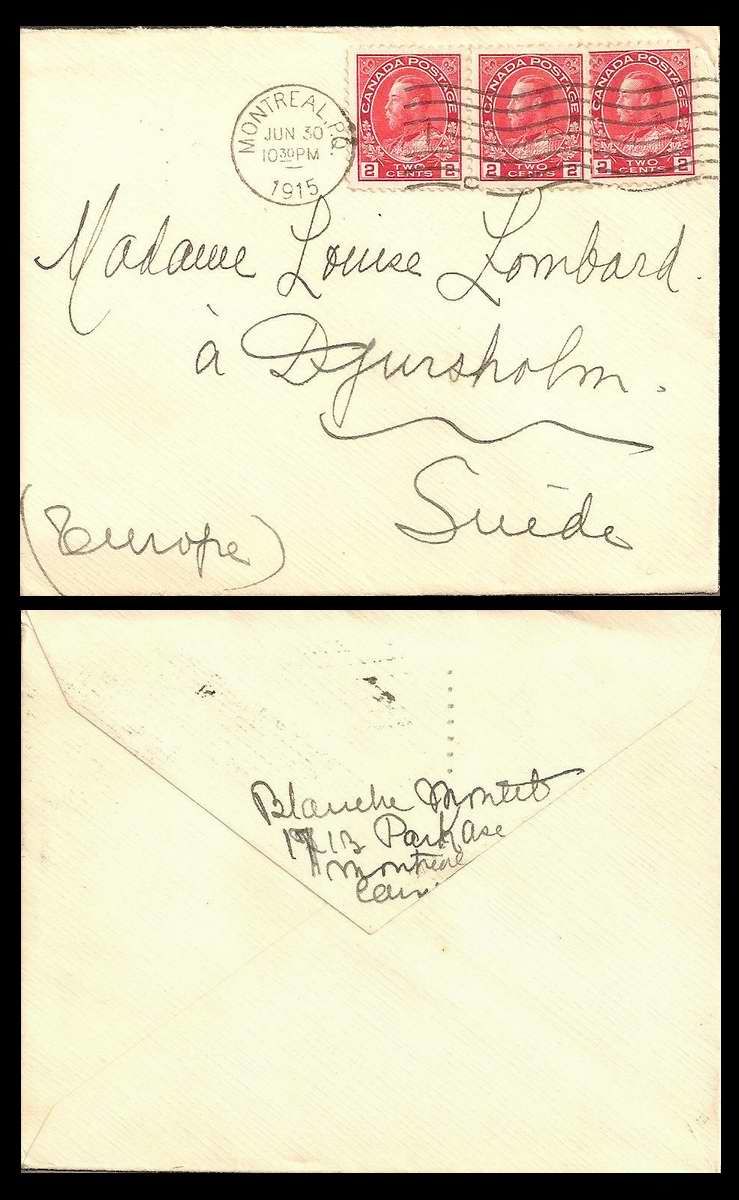 MONTREAL, P.Q.
JUN 30
10 30 PM
1915
CANADA POSTAGE
2 TWO CENTS 2
CANADA POSTAGE
2 TWO CENTS 2
CANADA POSTAGE
2 TWO CENTS 2
Madame Louise Lombard.
à Djursholm.
Suède
(Europe)
Blanche Montet
Park Ave
Montreal